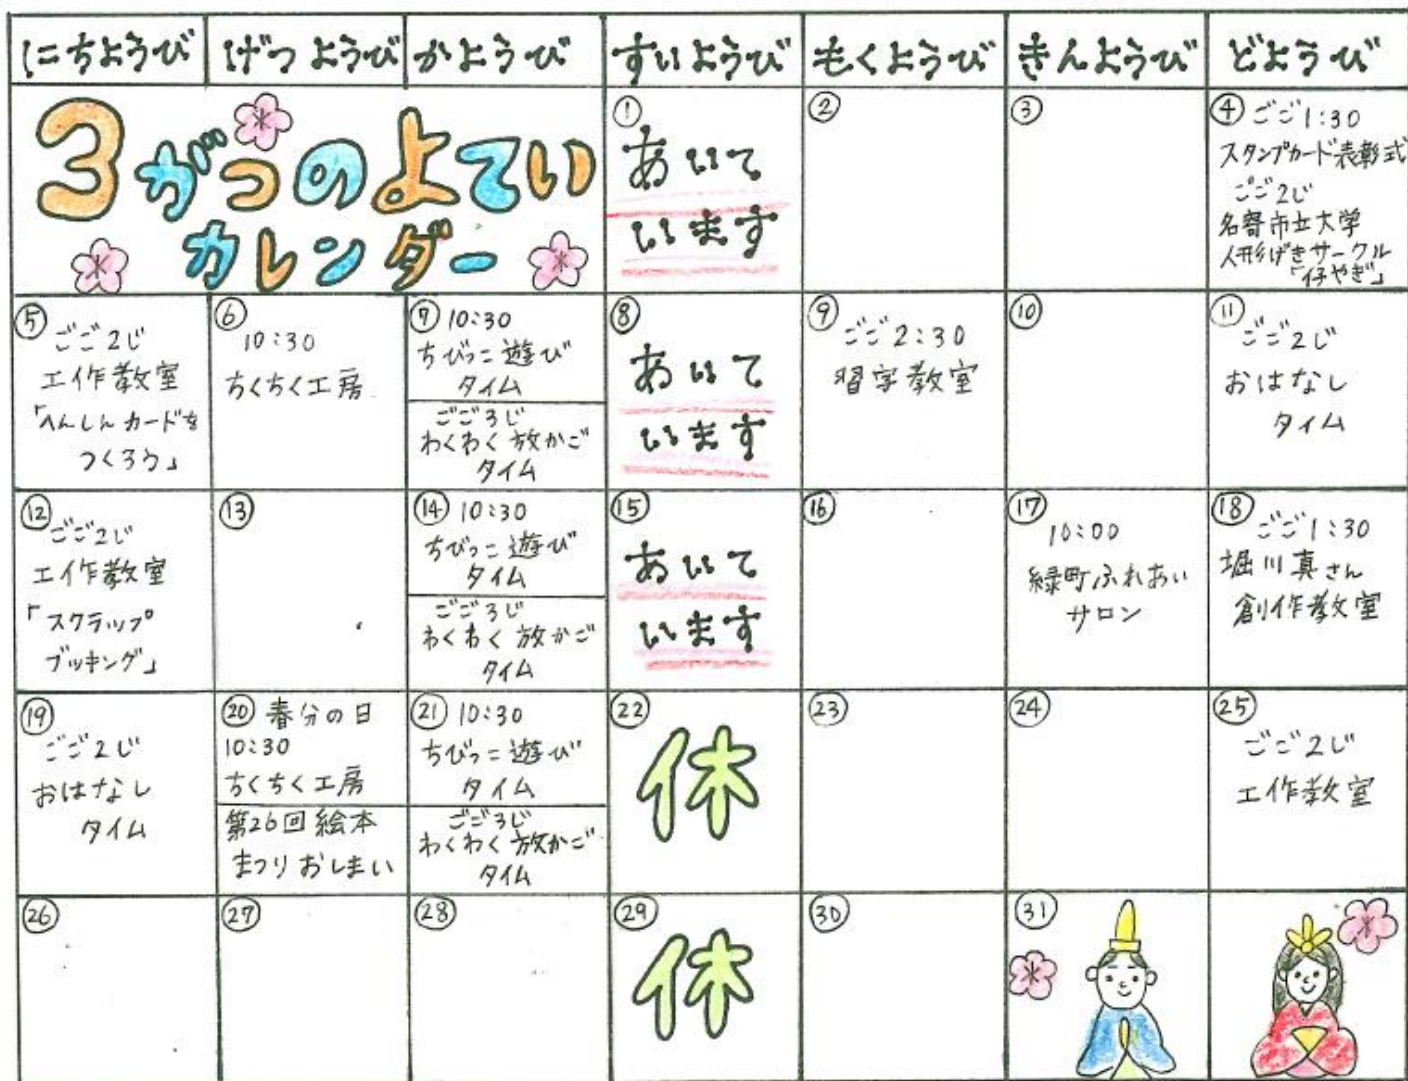 にちようび
げつようび
かようび
すいようび
もくようび
きんようび
どようび
3がつのよてい
カレンダー
①
あいて
います
②
③
④ ごご1:30
スタンプカード表彰式
ごご2じ
名寄市立大学
人形げきサークル
「仔やぎ」
⑤
ごご2じ
工作教室
「へんしんカードを
つくろう」
⑥
10:30
ちくちく工房
⑦ 10:30
ちびっこ遊び
タイム
ごご3じ
わくわく放かご
タイム
⑧
あいて
います
⑨
ごご2:30
習字教室
⑩
⑪
ごご2じ
おはなし
タイム
⑫
ごご2じ
工作教室
「スクラップ
ブッキング」
⑬
⑭ 10:30
ちびっこ遊び
タイム
ごご3じ
わくわく放かご
タイム
⑮
あいて
います
⑯
⑰
10:00
緑町ふれあい
サロン
⑱ ごご1:30
堀川真さん
創作教室
⑲
ごご2じ
おはなし
タイム
⑳ 春分の日
10:30
ちくちく工房
第26回絵本
まつりおしまい
㉑ 10:30
ちびっこ遊び
タイム
ごご3じ
わくわく放かご
タイム
㉒
休
㉓
㉔
㉕
ごご2じ
工作教室
㉖
㉗
㉘
㉙
休
㉚
㉛